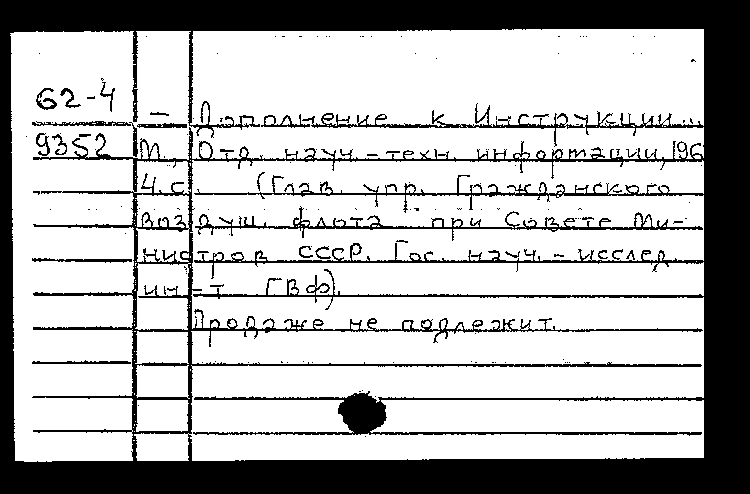 62-4 — Дополнение к Инструкции...
9352 М., Отд. науч.-техн. информации, 196
4 с. (Глав. упр. Гражданского
воздуш. флота при Совете Ми-
нистров СССР. Гос. науч.-исслед.
ин-т ГВФ).
Продаже не подлежит.